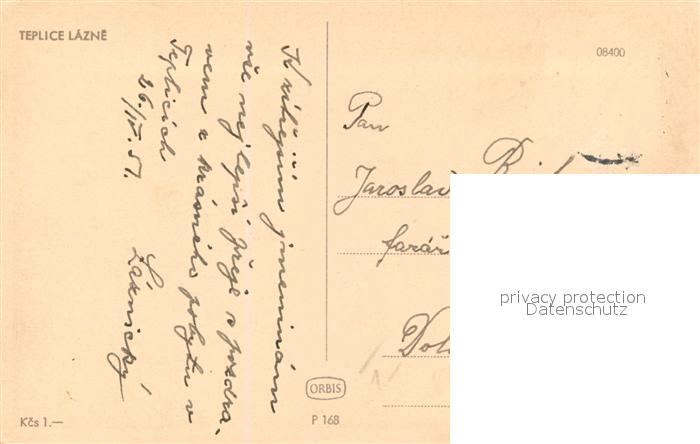 TEPLICE LÁZNĚ
08400
K jmeninám
vše nejlepší přeje s pozdra-
vem z krásného pobytu v
Teplicích
26./IV. 51.
Láznický
Pan
Jaroslav
farář
Kčs 1.—
ORBIS
P 168
privacy protection
Datenschutz